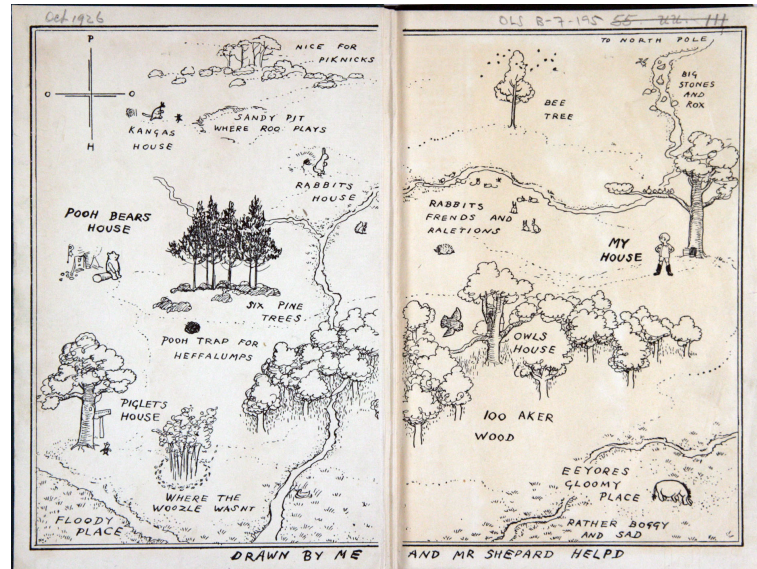 Oct 1926
OLS B-7-195
P
O
O
H
NICE FOR
PIKNICKS
KANGAS
HOUSE
SANDY PIT
WHERE ROO PLAYS
RABBITS
HOUSE
POOH BEARS
HOUSE
SIX PINE
TREES
POOH TRAP FOR
HEFFALUMPS
PIGLETS
HOUSE
WHERE THE
WOOZLE WASNT
FLOODY
PLACE
DRAWN BY ME
TO NORTH POLE
BIG
STONES
AND
ROX
BEE
TREE
RABBITS
FRENDS AND
RALETIONS
MY
HOUSE
OWLS
HOUSE
100 AKER
WOOD
EEYORES
GLOOMY
PLACE
RATHER BOGGY
AND SAD
AND MR SHEPARD HELPD